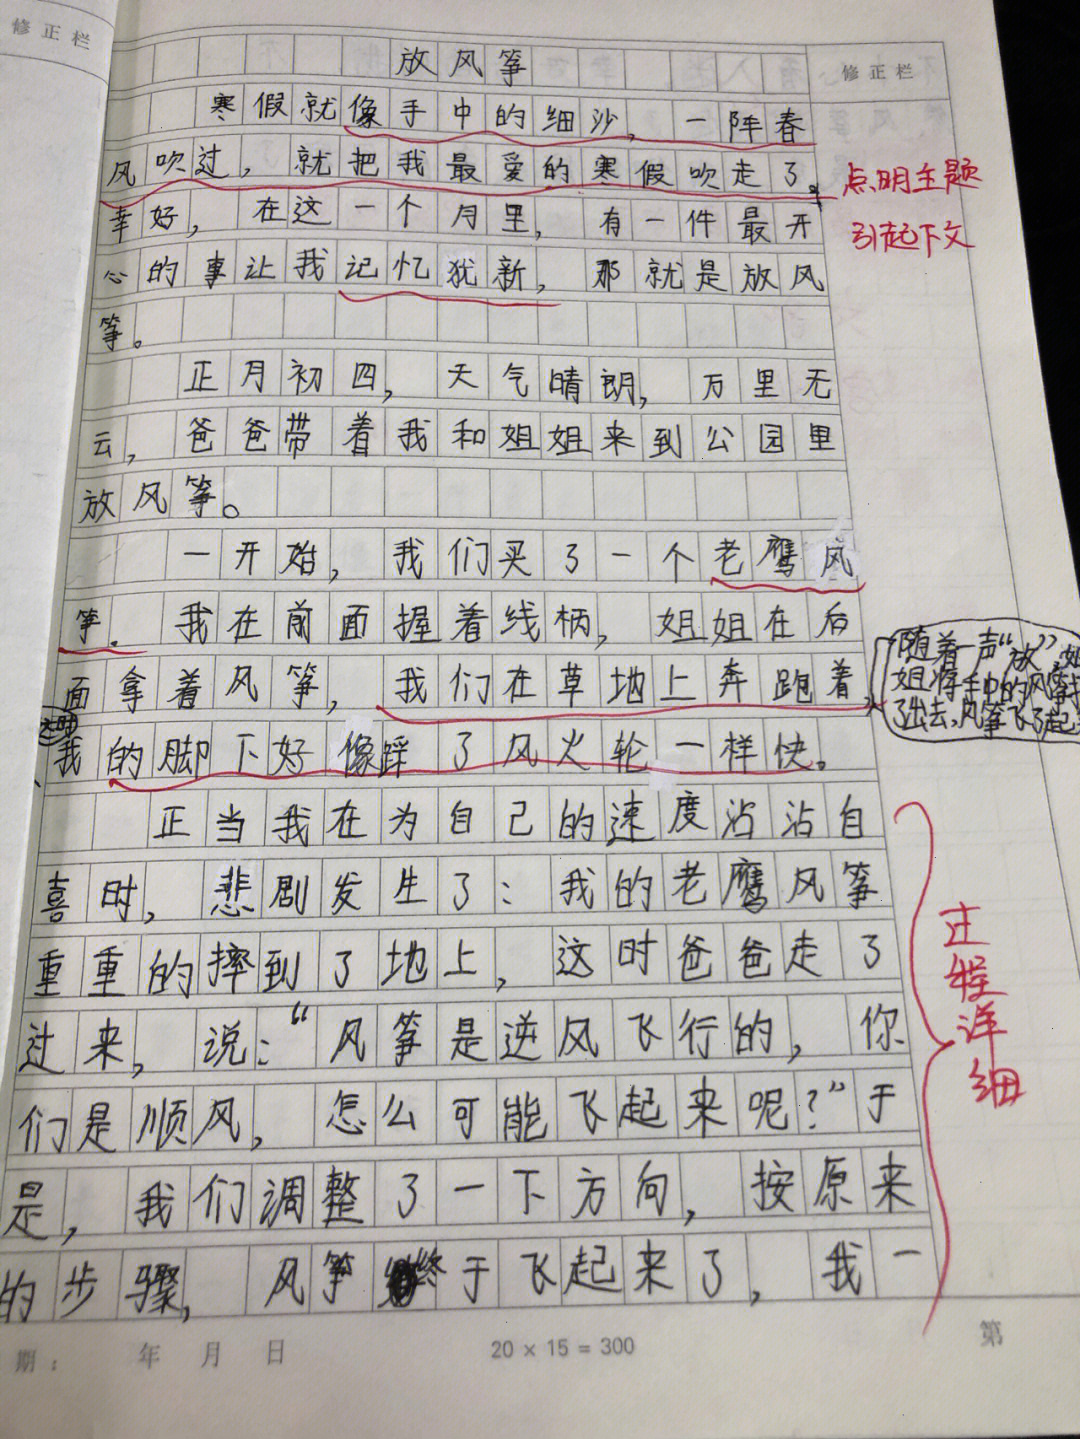 修正栏
放风筝
修正栏
寒假就像手中的细沙，一阵春
风吹过，就把我最爱的寒假吹走了。
点明主题
幸好，在这一个月里，有一件最开
引起下文
心的事让我记忆犹新，那就是放风
筝。
正月初四，天气晴朗，万里无
云，爸爸带着我和姐姐来到公园里
放风筝。
一开始，我们买了一个老鹰风
筝。我在前面握着线柄，姐姐在后
面拿着风筝，我们在草地上奔跑着
随着一声“放”，姐
姐将手中的风筝
了出去，风筝飞了起
我的脚下好像踩了风火轮一样快。
正当我在为自己的速度沾沾自
喜时，悲剧发生了：我的老鹰风筝
重重的摔到了地上，这时爸爸走了
过来，说：“风筝是逆风飞行的，你
们是顺风，怎么可能飞起来呢？”于
是，我们调整了一下方向，按原来
的步骤，风筝终于飞起来了，我一
过程详细
期： 年 月 日
20 × 15 = 300
第